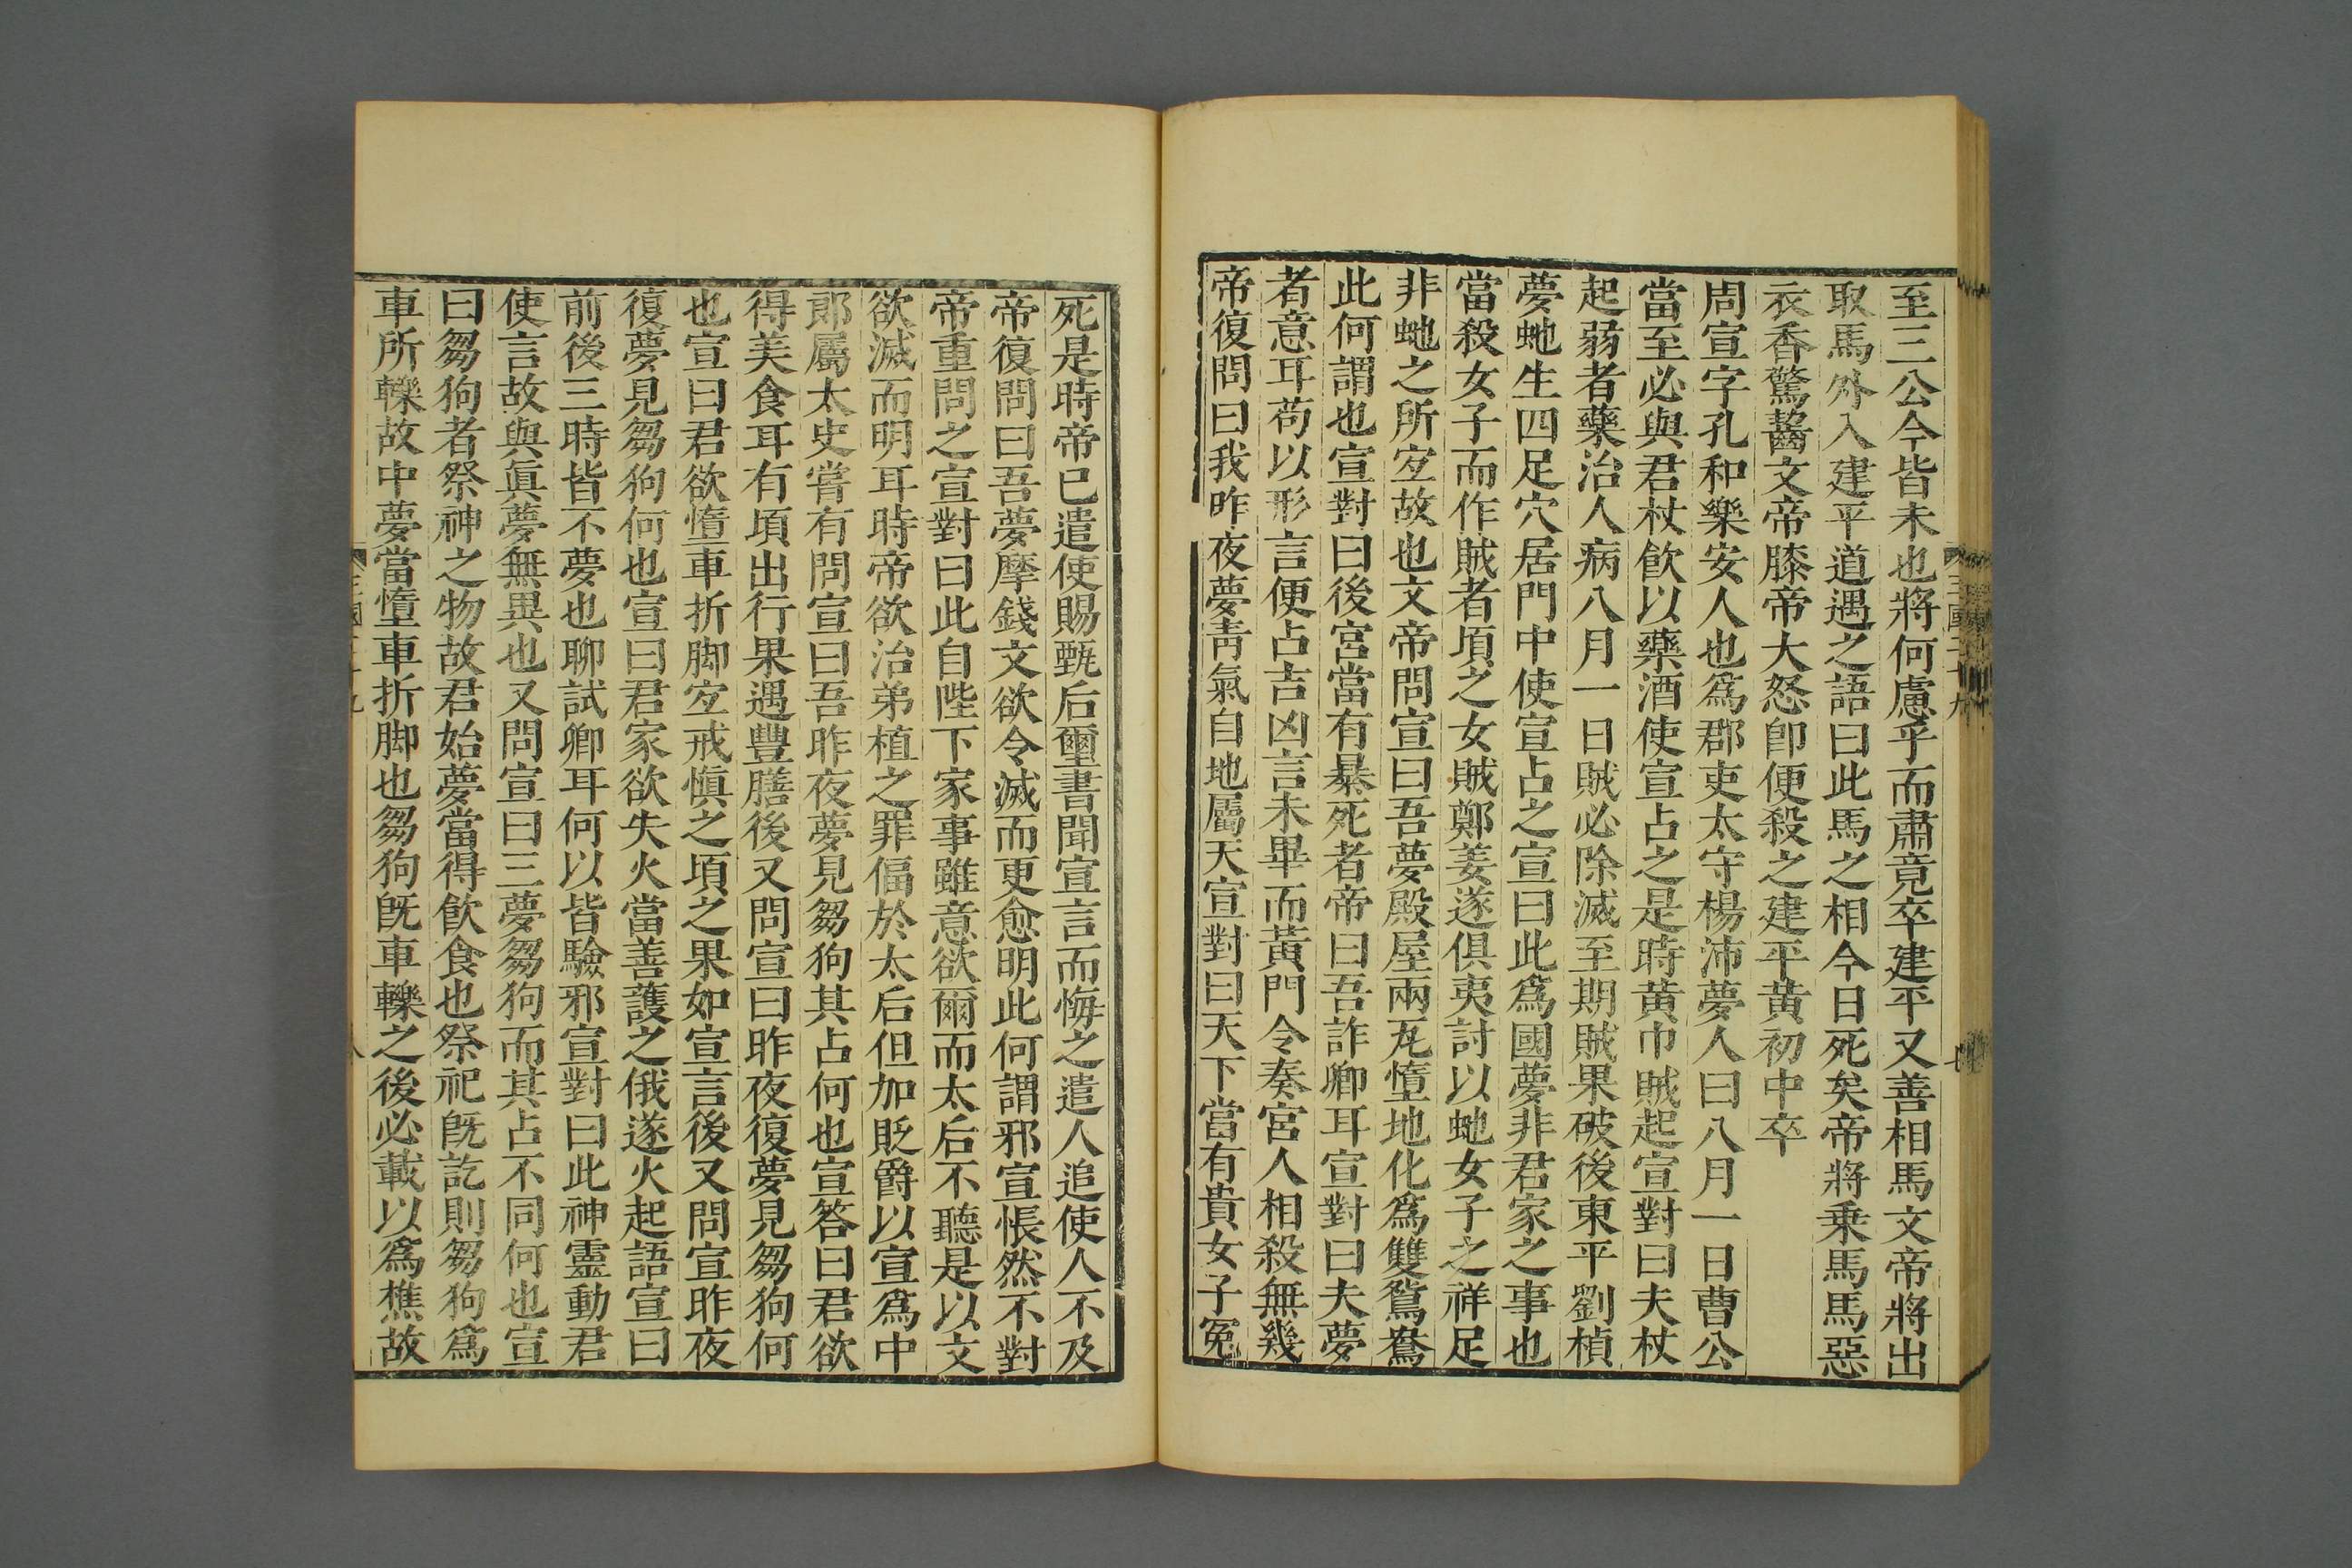 至三公今皆未也將何慮乎而肅竟卒建平又善相馬文帝將出
取馬外入建平道遇之語曰此馬之相今日死矣帝將乗馬馬惡
衣香驚齧文帝膝帝大怒卽便殺之建平黄初中卒
周宣字孔和樂安人也爲郡吏太守楊沛夢人曰八月一日曹公
當至必與君杖飮以藥酒使宣占之是時黄巾賊起宣對曰夫杖
起弱者藥治人病八月一日賊必除滅至期賊果破後東平劉楨
夢虵生四足穴居門中使宣占之宣曰此爲國夢非君家之事也
當殺女子而作賊者頃之女賊鄭姜遂俱夷討以虵女子之祥足
非虵之所宐故也文帝問宣曰吾夢殿屋兩瓦墮地化爲雙鴛鴦
此何謂也宣對曰後宮當有暴死者帝曰吾詐卿耳宣對曰夫夢
者意耳苟以形言便占吉凶言未畢而黃門令奏宮人相殺無幾
帝復問曰我昨夜夢靑氣自地屬天宣對曰天下當有貴女子冤
死是時帝已遣使賜甄后璽書聞宣言而悔之遣人追使人不及
帝復問曰吾夢摩錢文欲令滅而更愈明此何謂邪宣悵然不對
帝重問之宣對曰此自陛下家事雖意欲爾而太后不聽是以文
欲滅而明耳時帝欲治弟植之罪偪於太后但加貶爵以宣爲中
郞屬太史嘗有問宣曰吾昨夜夢見芻狗其占何也宣答曰君欲
得美食耳有頃出行果遇豐膳後又問宣曰昨夜復夢見芻狗何
也宣曰君欲墮車折脚宐戒愼之頃之果如宣言後又問宣昨夜
復夢見芻狗何也宣曰君家欲失火當善護之俄遂火起語宣曰
前後三時皆不夢也聊試卿耳何以皆驗邪宣對曰此神靈動君
使言故與眞夢無異也又問宣曰三夢芻狗而其占不同何也宣
曰芻狗者祭神之物故君始夢當得飮食也祭祀旣訖則芻狗爲
車所轢故中夢當墮車折脚也芻狗旣車轢之後必載以爲樵故